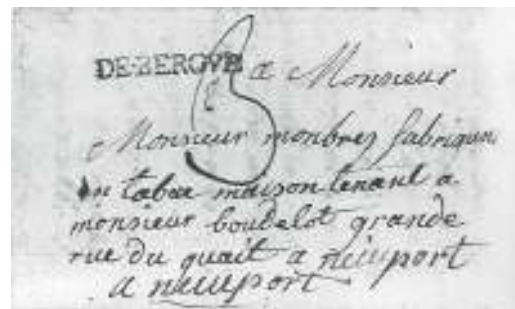 DE BERGUE a Monsieur
Monsieur monbrey fabriquen
en tabac maison tenant a
monsieur boudelot grande
rue du quait a nieuport
a nieuport